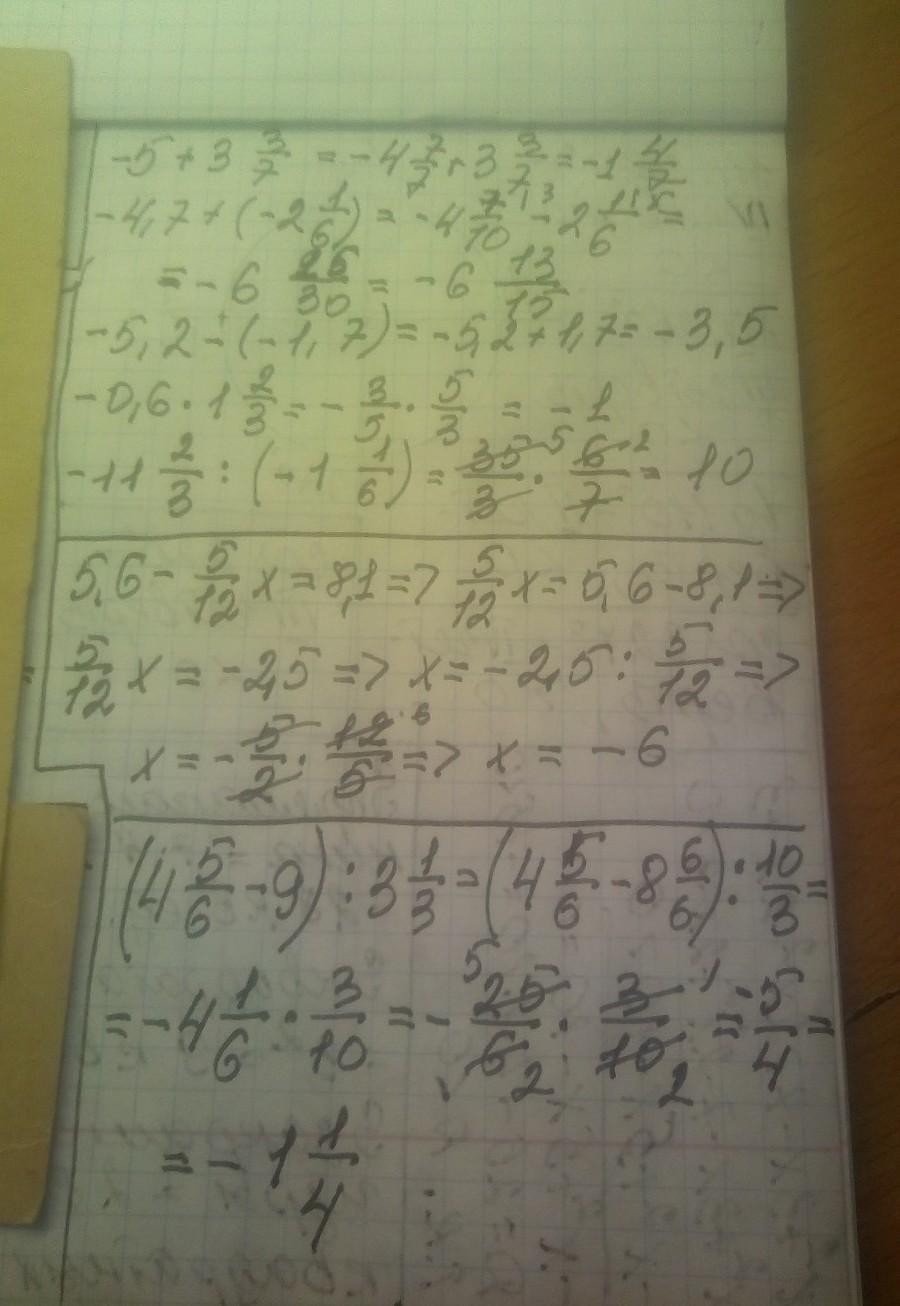 -5 + 3 3/7 = -4 7/7 + 3 3/7 = -1 4/7
-4,7 + (-2 1/6) = -4 7/10 - 2 1/6 =
= -6 26/30 = -6 13/15
-5,2 - (-1,7) = -5,2 + 1,7 = -3,5
-0,6 · 1 2/3 = - 3/5 · 5/3 = -1
-11 2/3 : (-1 1/6) = 35/3 · 6/7 = 10
5,6 - 5/12 x = 8,1 => 5/12 x = 5,6 - 8,1 =>
= 5/12 x = -2,5 => x = -2,5 : 5/12 =>
x = - 5/2 · 12/5 => x = -6
(4 5/6 - 9) : 3 1/3 = (4 5/6 - 8 6/6) : 10/3 =
= -4 1/6 · 3/10 = - 25/6 · 3/10 = -5/4 =
= -1 1/4